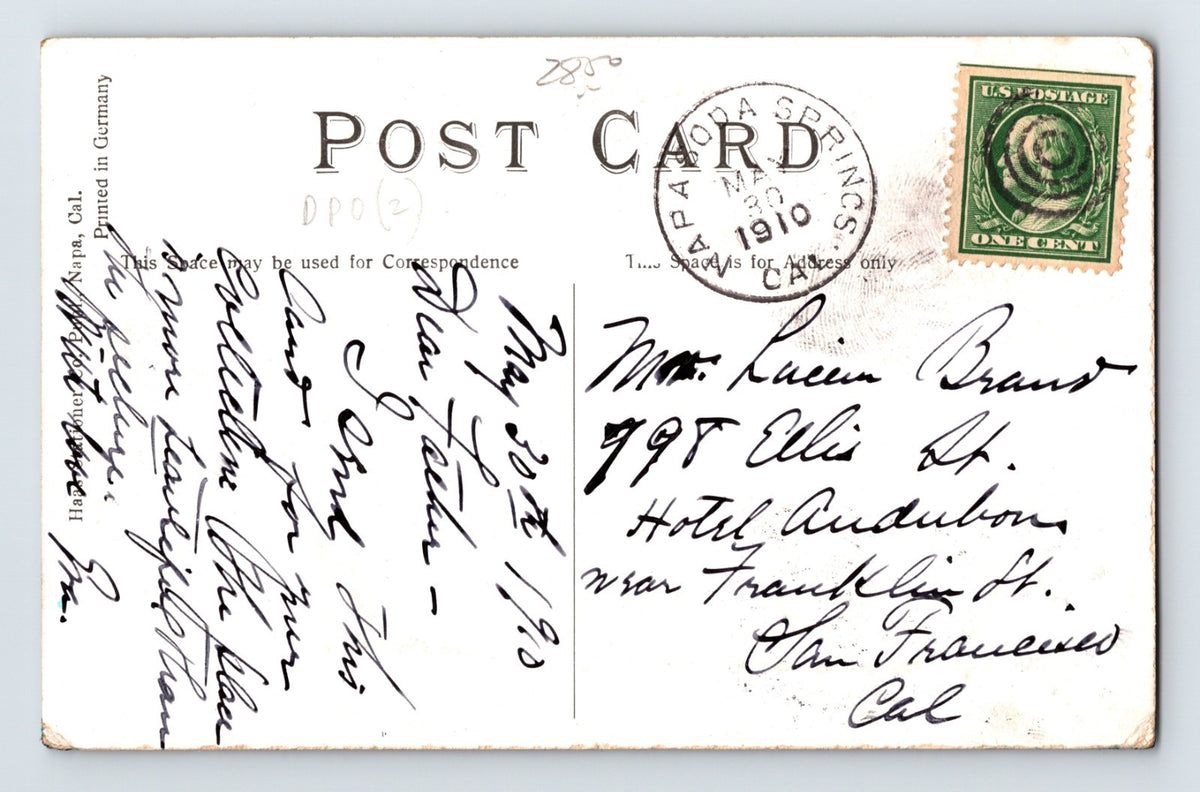 2850
POST CARD
DPO (2)
NAPA SODA SPRINGS, CAL.
MAY
30
1910
U.S. POSTAGE
ONE CENT
Printed in Germany
Napa, Cal.
This Space may be used for Correspondence
Space is for Address only
May 30th 1910
Dear Father –
I send this
card for your
collection. The place
is more beautiful than
the pictures.
With love
Mr. Lucien Brand
798 Ellis St.
Hotel Audubon
near Franklin St.
San Francisco
Cal